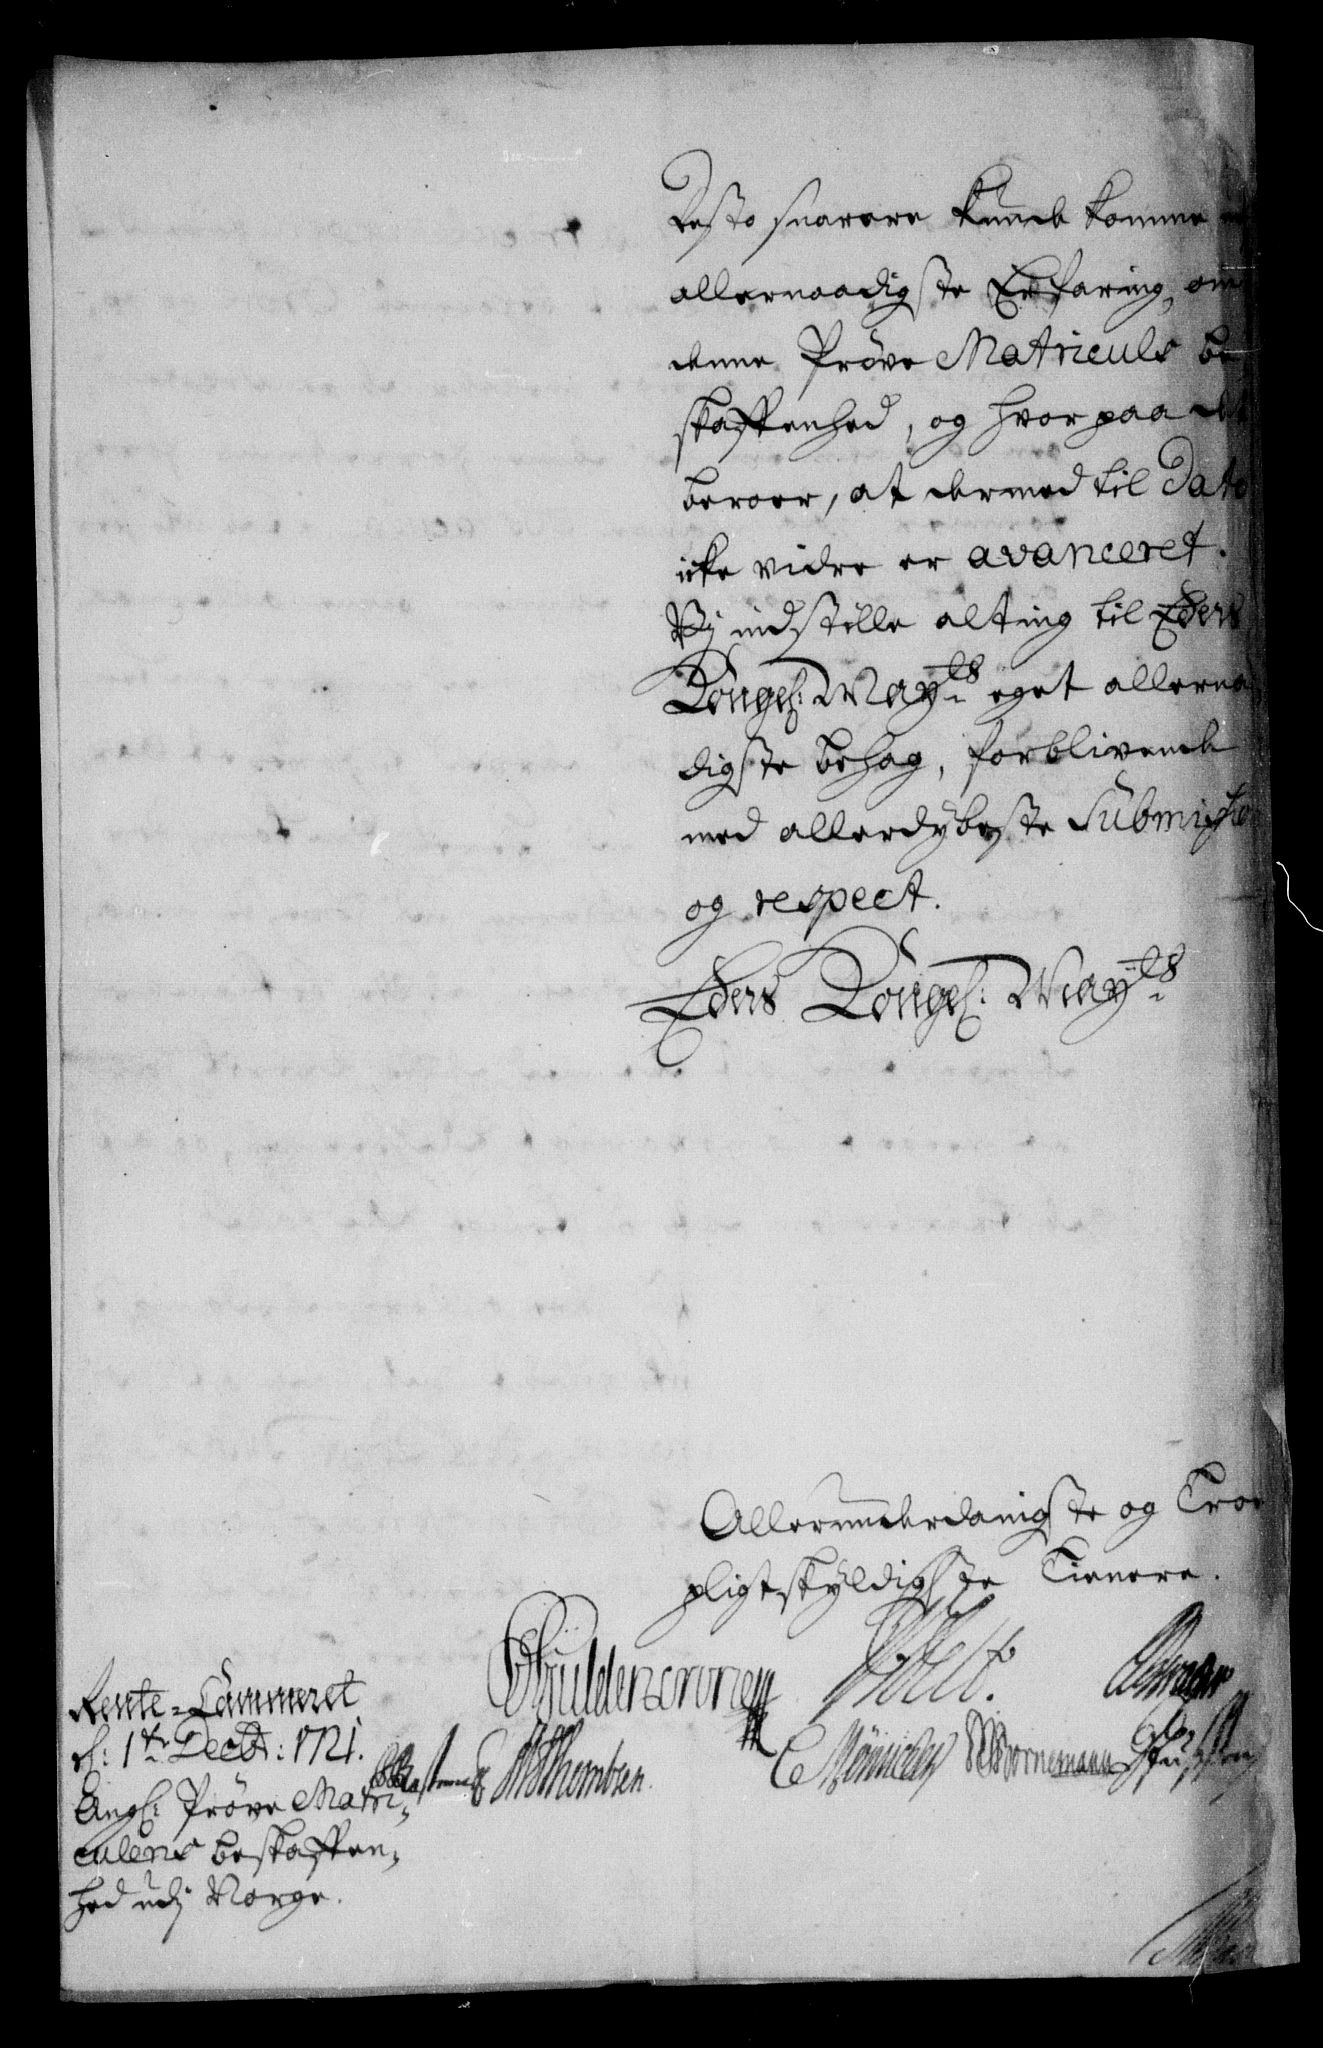 desto snarere kunde komme
allernaadigste Erfaring, om
denne Prøve Matriculs be
skaffenhed, og hvor paa det
beroer, at dermed til Dato
icke vidre er avanceret.
Vj indstille alting til Eders
Kongel: May:ts eget allerna
digste behag, forblivende
med allerdybeste Submission
og respect.
Eders Kongel: May:ts
Allerunderdanigste og Troe
pligtskyldigste Tienere.
Güldencrone
Rente-Cammeret
d: 1t Decbr: 1721.
Angl: Prøve Matri-
culens beskaffen-
hed udj Norge.
Thombsen.
C Mönnichen Bornemann